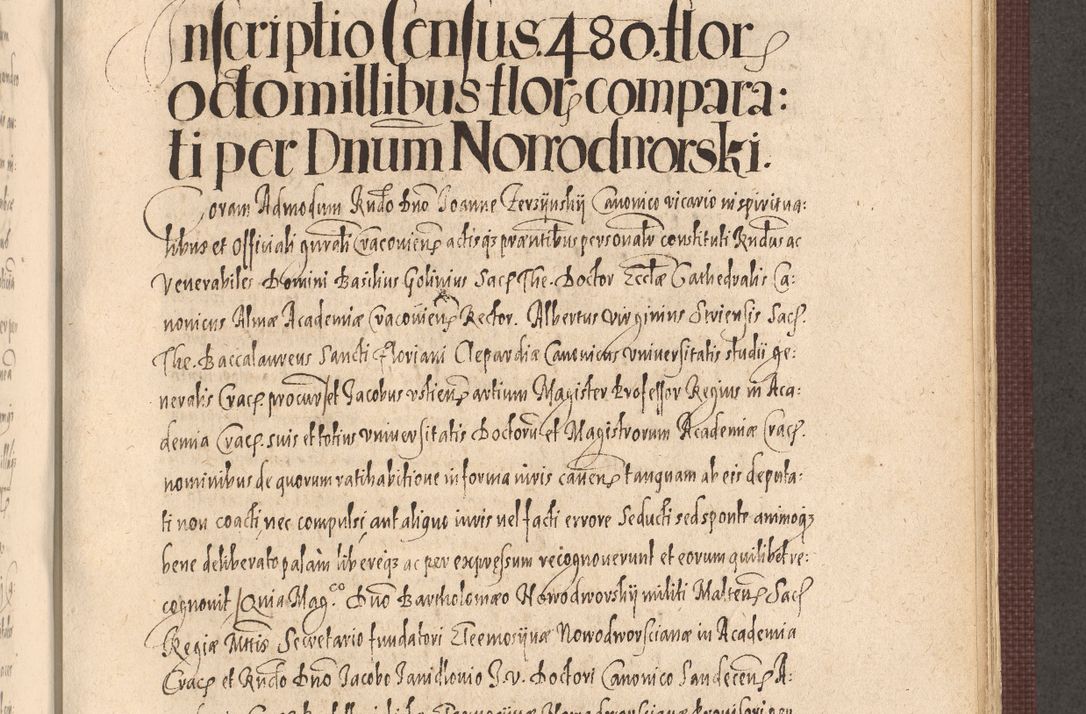 Inscriptio Census. 480. flor.
octo millibus flor. compara:
ti per Dnum Nowodworski.
Coram Admodum Rndo Dno Ioanne Zerzynskij Canonico vicario in spiritua:
libus et Officiali gnrali Cracouien. actisq; prsentibus personalr constituti Rndus ac
Venerabiles Domini Basilius Golinius Sac. The. Doctor Ecclæ Cathedralis Ca:
nonicus Almæ Academiæ Cracouien. Rector. Albertus Virginius Striensis Sac.
The. Baccalaureus Sancti Floriani Clepardiæ Canonicus Vniuersitatis studij ge:
neralis Crac. procur. et Jacobus vstien. artium Magister Professor Regius in Aca:
demia Crac. suis et totius vniuersitatis Doctoru et Magistrorum Academiæ Crac.
nominibus de quorum ratihabitione in forma iuris cauen. tanquam ab eis deputa:
ti non coacti nec compulsi aut aliquo iuris uel facti errore Seducti sed sponte animoq;
bene deliberato palàm libereq; ac per expressum recognouerunt et eorum quilibet re:
cognouit Quia Mag.co Dno Bartholomæo Nowodworskij militi Malten. Sac.
Regiæ Mttis Secretario fundatori Eleemosijnæ Nowodworscianæ in Academia
Crac. et Rndo Dno Jacobo Janidlouio J. V. Doctori Canonico Sandecen. A: